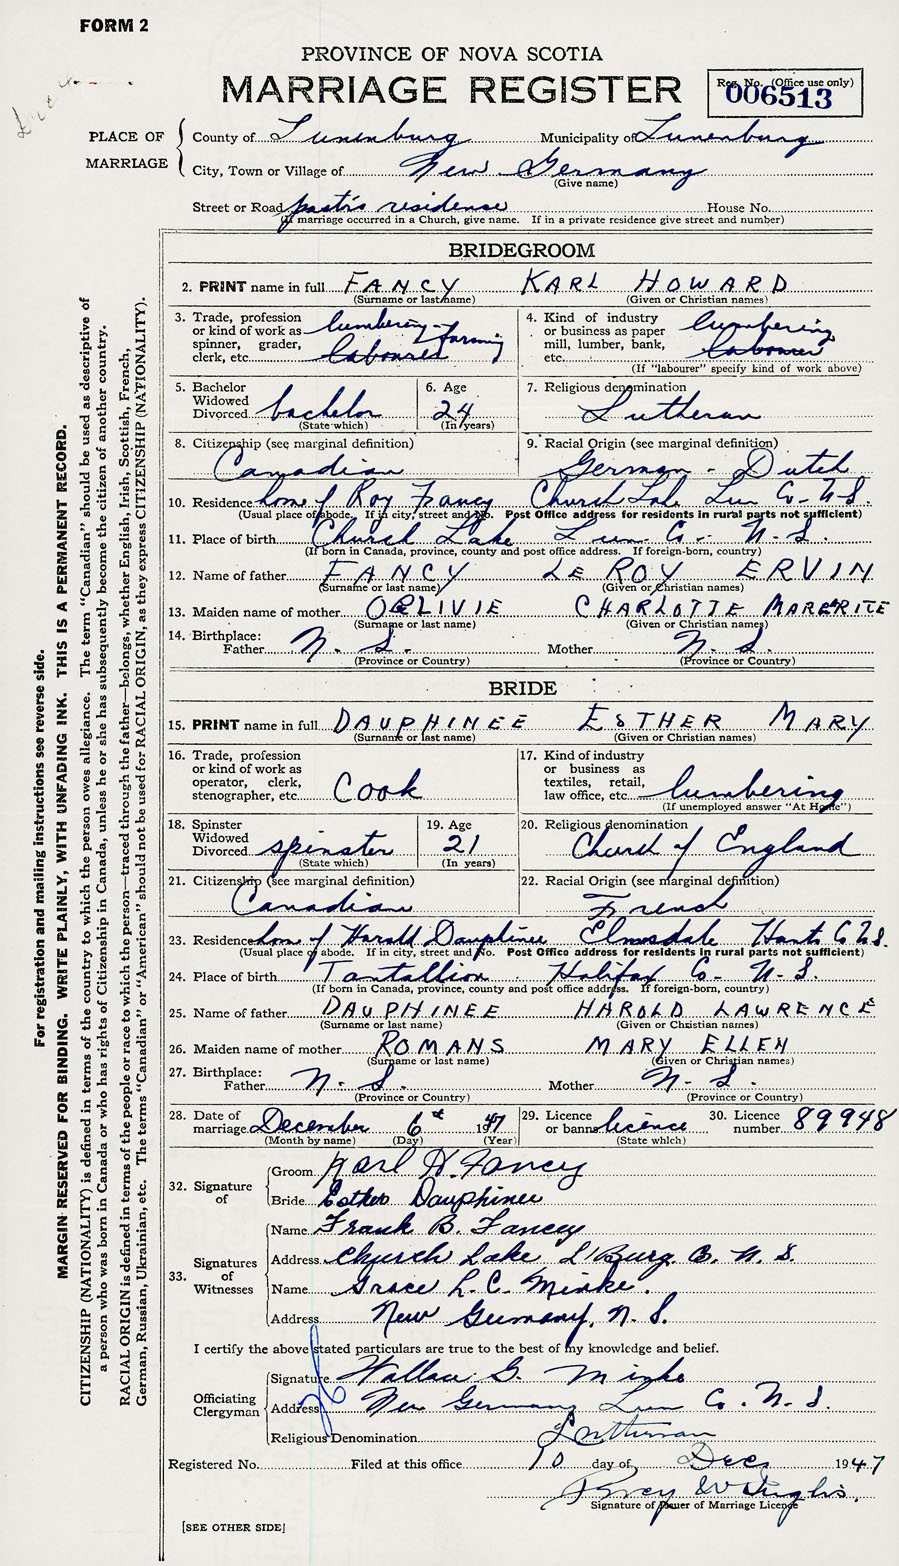 FORM 2
PROVINCE OF NOVA SCOTIA
MARRIAGE REGISTER
Reg. No. (Office use only)
006513
PLACE OF MARRIAGE
County of Lunenburg Municipality of Lunenburg
City, Town or Village of New Germany
(Give name)
Street or Road pastor's residence House No.
(If marriage occurred in a Church, give name. If in a private residence give street and number)
BRIDEGROOM
2. PRINT name in full FANCY KARL HOWARD
(Surname or last name) (Given or Christian names)
3. Trade, profession or kind of work as spinner, grader, clerk, etc. lumbering - farming labourer
4. Kind of industry or business as paper mill, lumber, bank, etc. lumbering labourer
(If "labourer" specify kind of work above)
5. Bachelor Widowed Divorced bachelor
(State which)
6. Age 24
(In years)
7. Religious denomination Lutheran
8. Citizenship (see marginal definition) Canadian
9. Racial Origin (see marginal definition) German - Dutch
10. Residence home of Roy Francy Church Lake Lun Co. N.S.
(Usual place of abode. If in city, street and No. Post Office address for residents in rural parts not sufficient)
11. Place of birth Church Lake Lun Co. N.S.
(If born in Canada, province, county and post office address. If foreign-born, country)
12. Name of father FANCY LE ROY ERVIN
(Surname or last name) (Given or Christian names)
13. Maiden name of mother OELIVIE CHARLOTTE MARGRITE
(Surname or last name) (Given or Christian names)
14. Birthplace:
Father N. S. Mother N. S.
(Province or Country) (Province or Country)
BRIDE
15. PRINT name in full DAUPHINEE ESTHER MARY
(Surname or last name) (Given or Christian names)
16. Trade, profession or kind of work as operator, clerk, stenographer, etc. Cook
17. Kind of industry or business as textiles, retail, law office, etc. lumbering
(If unemployed answer "At Home")
18. Spinster Widowed Divorced spinster
(State which)
19. Age 21
(In years)
20. Religious denomination Church of England
21. Citizenship (see marginal definition) Canadian
22. Racial Origin (see marginal definition) French
23. Residence home of Harold Dauphinee Elmsdale Hants Co N.S.
(Usual place of abode. If in city, street and No. Post Office address for residents in rural parts not sufficient)
24. Place of birth Tantallion Halifax Co. N.S.
(If born in Canada, province, county and post office address. If foreign-born, country)
25. Name of father DAUPHINEE HAROLD LAWRENCE
(Surname or last name) (Given or Christian names)
26. Maiden name of mother ROMANS MARY ELLEN
(Surname or last name) (Given or Christian names)
27. Birthplace:
Father N. S. Mother N. S.
(Province or Country) (Province or Country)
28. Date of marriage December 6th 1947
(Month by name) (Day) (Year)
29. Licence or banns licence
(State which)
30. Licence number 89948
32. Signature of
Groom Karl H. Fancy
Bride Esther Dauphinee
33. Signatures of Witnesses
Name Frank B. Fancey
Address Church Lake L'Burg. Co. N. S.
Name Grace L. C. Minke.
Address New Germany, N. S.
I certify the above stated particulars are true to the best of my knowledge and belief.
Officiating Clergyman
Signature Wallace G. Minke
Address New Germany Lun Co. N. S.
Religious Denomination Lutheran
Registered No. Filed at this office 10 day of Dec 1947
Percy
Signature of Issuer of Marriage Licence
[SEE OTHER SIDE]
For registration and mailing instructions see reverse side.
MARGIN RESERVED FOR BINDING. WRITE PLAINLY, WITH UNFADING INK. THIS IS A PERMANENT RECORD.
CITIZENSHIP (NATIONALITY) is defined in terms of the country to which the person owes allegiance. The term "Canadian" should be used as descriptive of
a person who was born in Canada or who has rights of Citizenship in Canada, unless he or she has subsequently become the citizen of another country.
RACIAL ORIGIN is defined in terms of the people or race to which the person—traced through the father—belongs, whether English, Irish, Scottish, French,
German, Russian, Ukrainian, etc. The terms "Canadian" or "American" should not be used for RACIAL ORIGIN, as they express CITIZENSHIP (NATIONALITY).